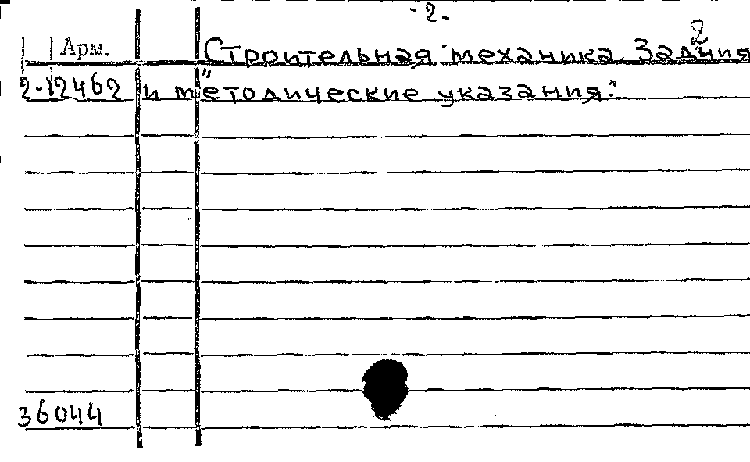 - 2. -
2
Арм. Строительная механика. Задания
2-12462 и методические указания."
36044